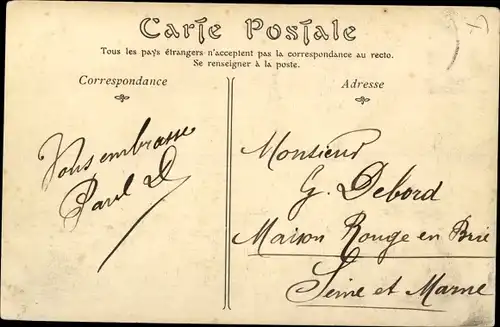 Carte Postale
Tous les pays étrangers n'acceptent pas la correspondance au recto.
Se renseigner à la poste.
Correspondance
Adresse
Vous embrasse
Paul D
Monsieur
G. Debord
Maison Rouge en Brie
Seine et Marne